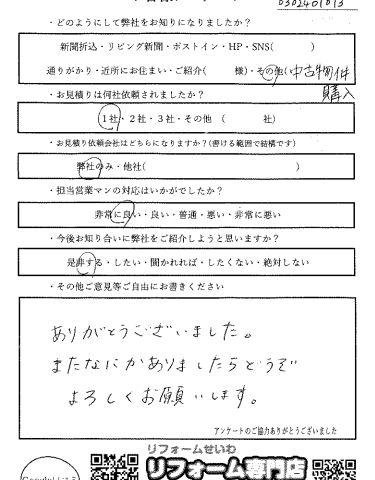 0302401013
・どのようにして弊社をお知りになりましたか？
新聞折込・リビング新聞・ポストイン・HP・SNS(　　　)
通りがかり・近所にお住まい・ご紹介(　　　様)・その他(中古物件
購入
・お見積りは何社依頼されましたか？
1社・2社・3社・その他　(　　　社)
・お見積り依頼会社はどちらになりますか？(書ける範囲で結構です)
弊社のみ・他社(　　　)
・担当営業マンの対応はいかがでしたか？
非常に良い・良い・普通・悪い・非常に悪い
・今後お知り合いに弊社をご紹介しようと思いますか？
是非する・したい・聞かれれば・したくない・絶対しない
・その他ご意見等ご自由にお書きください
ありがとうございました。
またなにかありましたらどうぞ
よろしくお願いします。
アンケートのご協力ありがとうございました
リフォームせいわ
リフォーム専門店